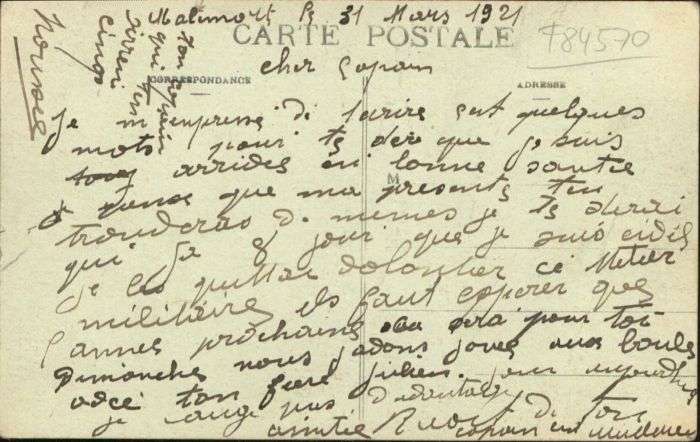 Malemort le 31 Mars 1921
CARTE POSTALE
F84570
CORRESPONDANCE
ADRESSE
cher Copain
Je m'empresse di t'arire cest quelques
mots pour te dire que je suis
arrides en bonne santie
pense que ma presente ten
trouderas di memes je te dirai
qui Sa 8 jour que je suis cidil
Je les quittai dolontier ce Metier
militaire ils faut esperer que
lannes prochains sa sera pour toi
Dimanches nous adons joues aux boules
adcé ton frere Julien. pour aujourdhui
je pas Dadantage
amitie di ton
copain
ton copain
qui